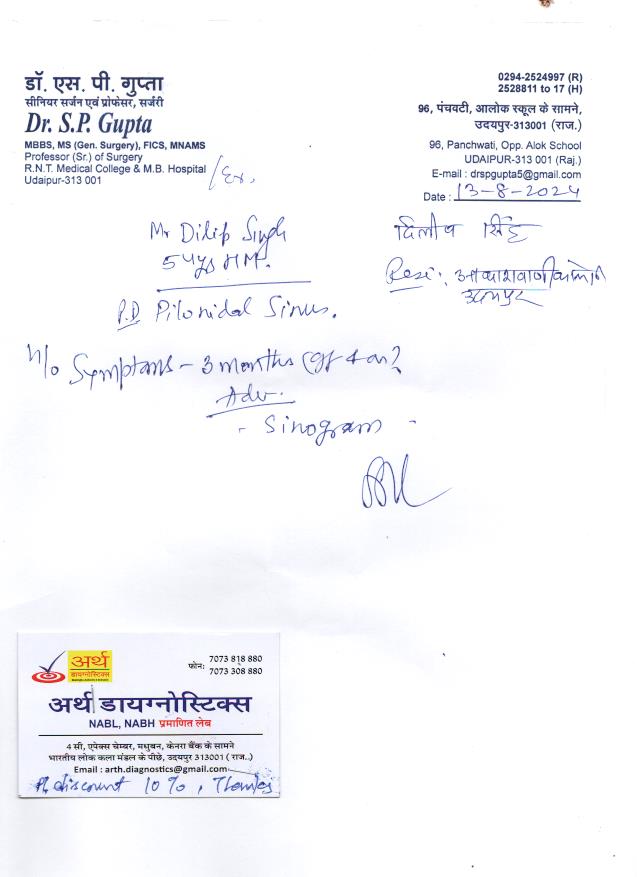 डॉ. एस. पी. गुप्ता
सीनियर सर्जन एवं प्रोफेसर, सर्जरी
Dr. S.P. Gupta
MBBS, MS (Gen. Surgery), FICS, MNAMS
Professor (Sr.) of Surgery
R.N.T. Medical College & M.B. Hospital /Ex.
Udaipur-313 001
0294-2524997 (R)
2528811 to 17 (H)
96, पंचवटी, आलोक स्कूल के सामने,
उदयपुर-313001 (राज.)
96, Panchwati, Opp. Alok School
UDAIPUR-313 001 (Raj.)
E-mail : drspgupta5@gmail.com
Date : 13-8-2024
Mr Dilip Singh
54yrs
दिलीप सिंह
Resi:
उदयपुर
P.D Pilonidal Sinus.
H/o Symptoms - 3 months
Adv.
- Sinogram -
अर्थ
डायग्नोस्टिक्स
फोन: 7073 818 880
7073 308 880
अर्थ डायग्नोस्टिक्स
NABL, NABH प्रमाणित लेब
4 सी, एपेक्स चेम्बर, मधुबन, केनरा बैंक के सामने
भारतीय लोक कला मंडल के पीछे, उदयपुर 313001 ( राज..)
Email : arth.diagnostics@gmail.com
discount 10%, Thanks